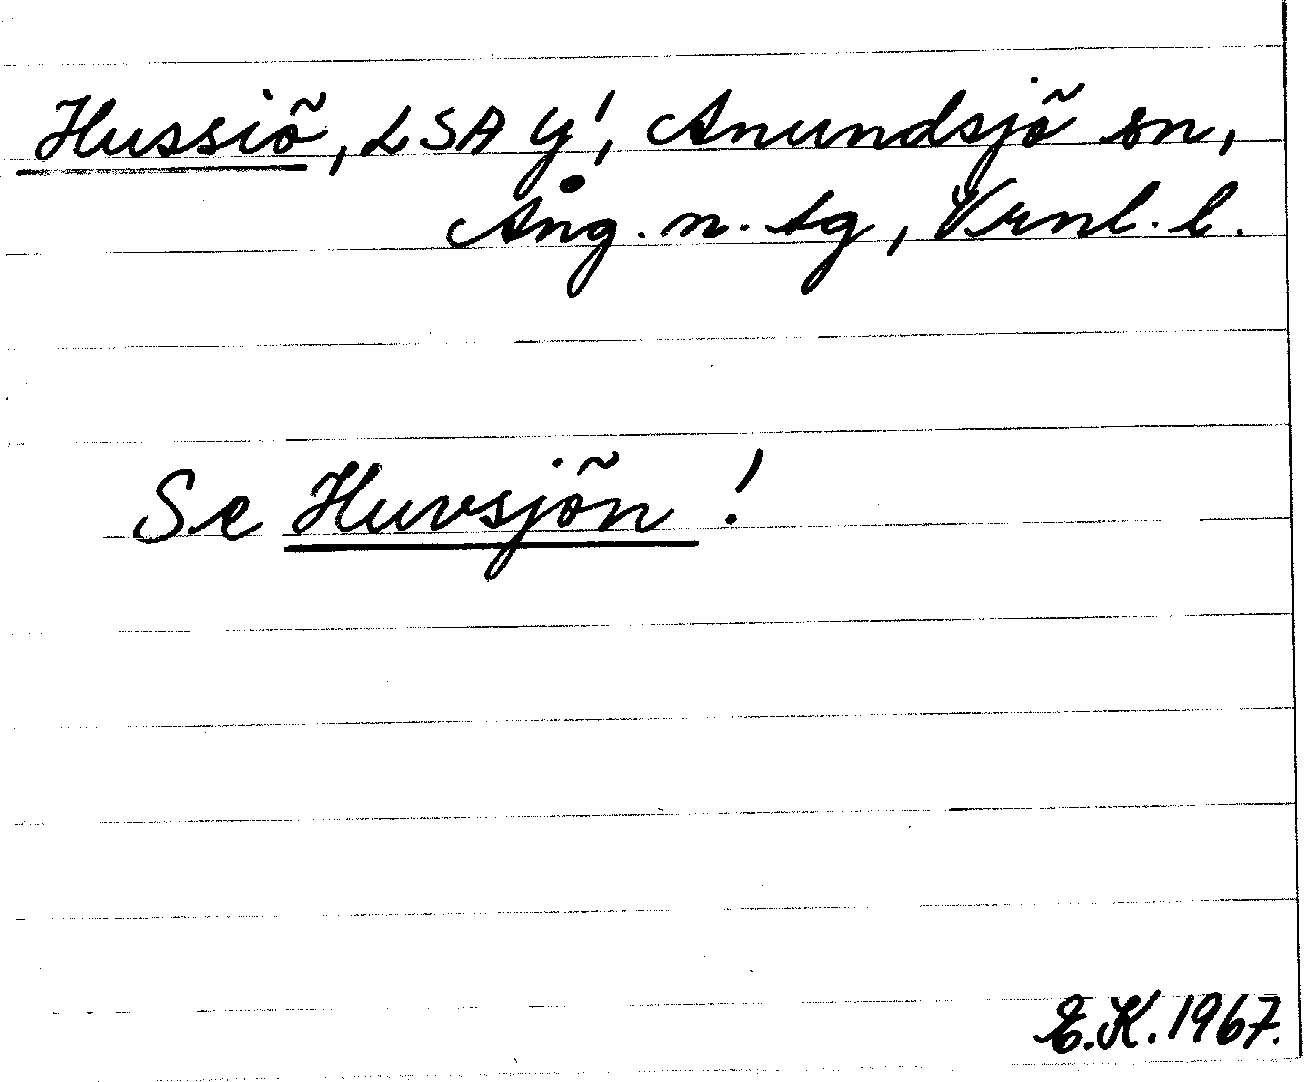 Hussiö, LSA Y¹, Anundsjö sn,
Ång. n. tg, Vrnl. l.
Se Huvsjön !
E.K. 1967.